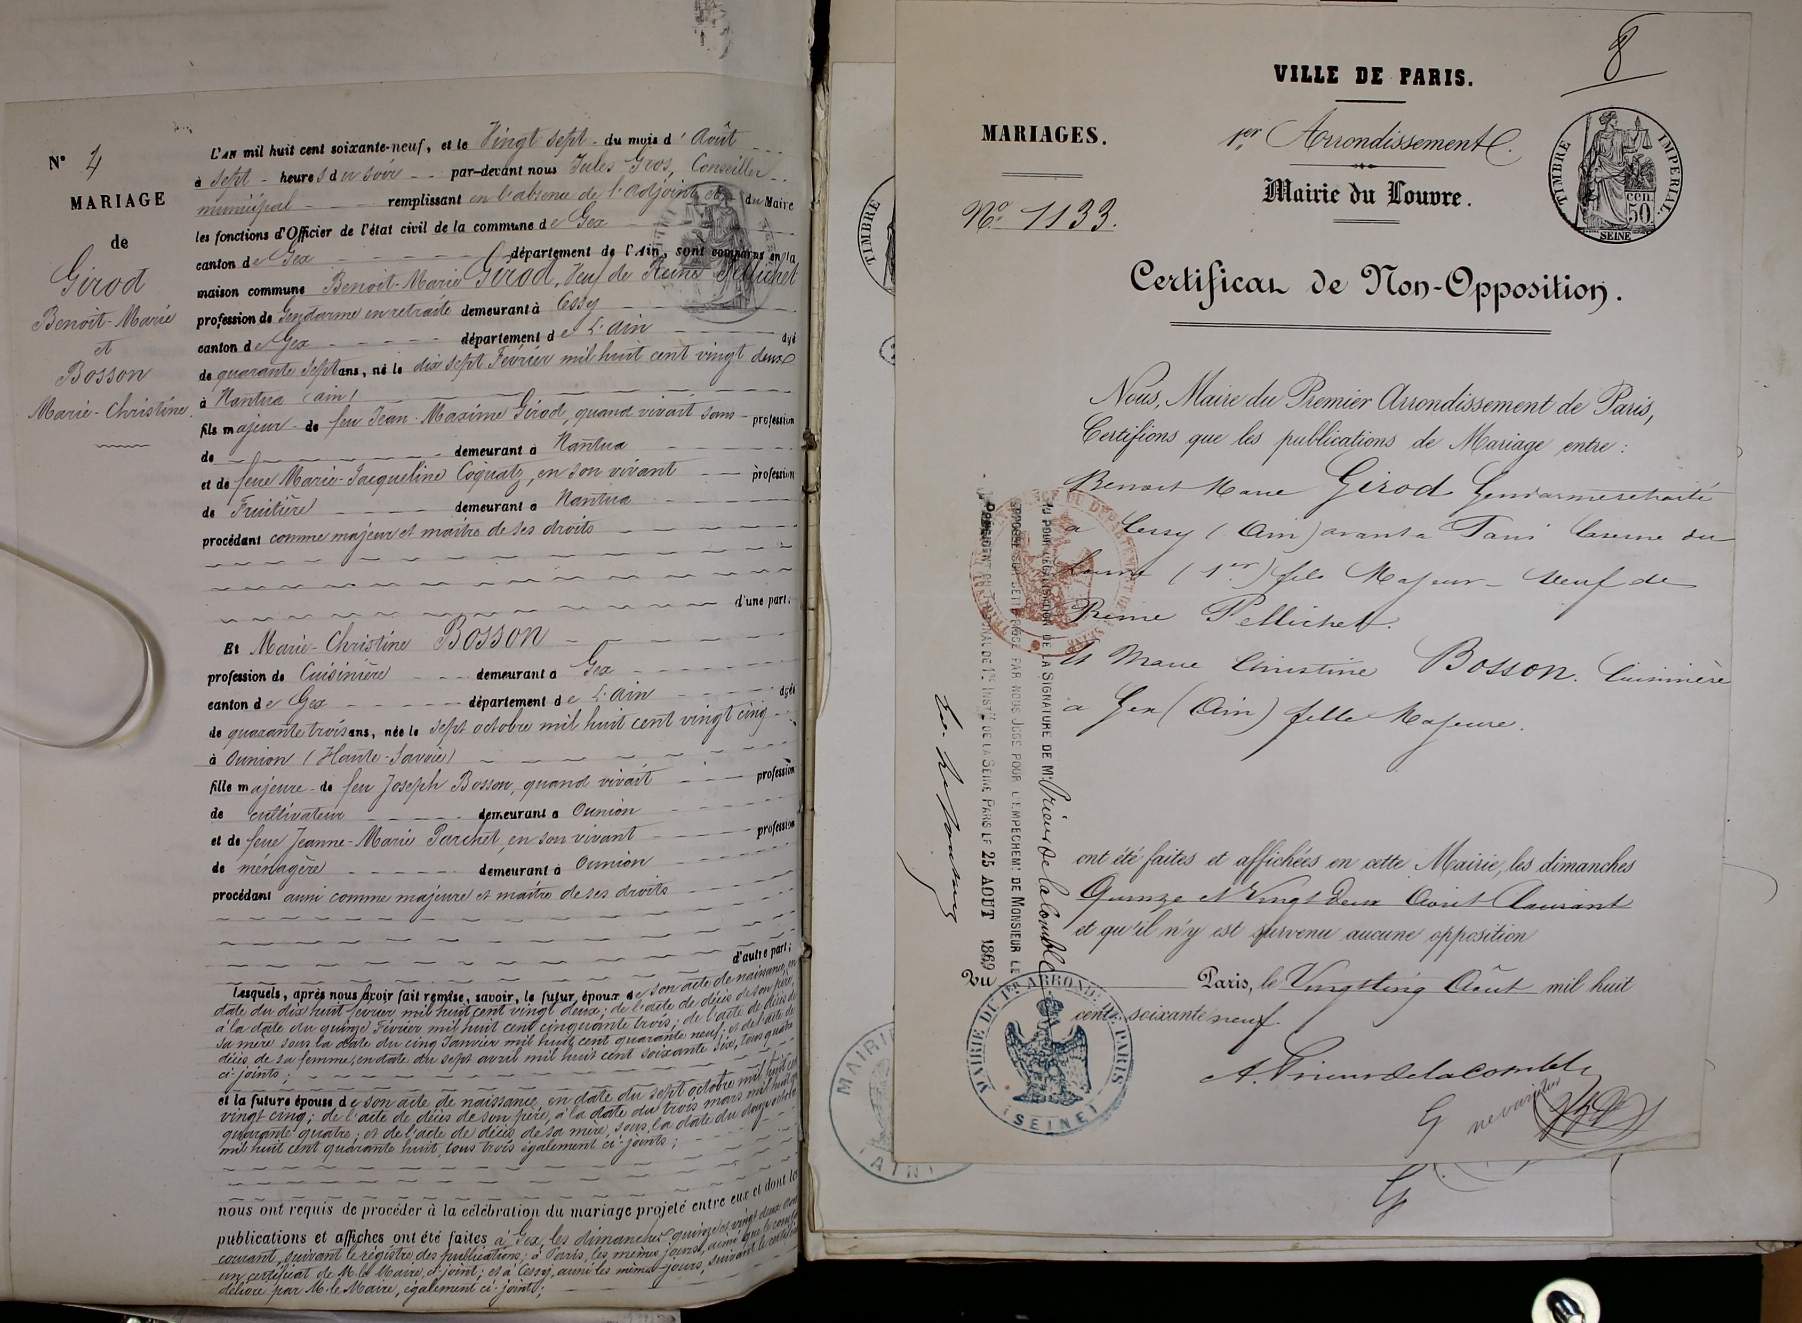 N° 4
MARIAGE
de
Girod
Benoit-Marie
et
Bosson
Marie-Christine
L'AN mil huit cent soixante-neuf, et le Vingt sept du mois d'Août
à sept heures du soir par-devant nous Jules Gros, Conseiller
municipal remplissant en l'absence de l'Adjoint et du Maire
les fonctions d'Officier de l'état civil de la commune de Gex
canton de Gex département de l'Ain, sont comparus en la
maison commune Benoit-Marie Girod, Veuf de Reine Pellichet
profession de Gendarme en retraite demeurant à Cessy
canton de Gex département de L'Ain âgé
de quarante sept ans, né le dix sept Février mil huit cent vingt deux
à Nantua (ain)
fils majeur de feu Jean-Maxime Girod, quand vivait sans profession
de demeurant à Nantua
et de feue Marie-Jacqueline Coquatz, en son vivant profession
de Fruitière demeurant à Nantua
procédant comme majeur et maître de ses droits
d'une part;
Et Marie-Christine BOSSON
profession de Cuisinière demeurant à Gex
canton de Gex département de L'Ain âgée
de quarante trois ans, née le sept octobre mil huit cent vingt cinq
à Onnion (Haute-Savoie)
fille majeure de feu Joseph Bosson, quand vivait profession
de cultivateur demeurant à Onnion
et de feue Jeanne-Marie Parchet, en son vivant profession
de ménagère demeurant à Onnion
procédant aussi comme majeure et maître de ses droits
d'autre part;
Lesquels, après nous avoir fait remise, savoir, le futur époux de son acte de naissance, en
date du dix huit février mil huit cent vingt deux; de l'acte de décès de son père,
à la date du quinze Février mil huit cent cinquante trois; de l'acte de décès de
sa mère sous la date du cinq Janvier mil huit cent quarante neuf; et de l'acte de
décès de sa femme, en date du sept avril mil huit cent soixante six, tous quatre
ci-joints;
et la future épouse de son acte de naissance, en date du sept octobre mil huit cent
vingt cinq; de l'acte de décès de son père, à la date du trois mars mil huit cent
quarante quatre; et de l'acte de décès de sa mère, sous la date du douze octobre
mil huit cent quarante huit, tous trois également ci-joints;
nous ont requis de procéder à la célébration du mariage projeté entre eux et dont les
publications et affiches ont été faites à Gex, les dimanches quinze et vingt deux août
courant, suivant le régistre des publications; à Paris, les mêmes jours, ainsi que le constate
un certificat de M. le Maire, ci-joint; et à Cessy, aussi les mêmes jours, suivant le certificat
délivré par M. le Maire, également ci-joints;
8
VILLE DE PARIS.
MARIAGES.
1er Arrondissement.
Mairie du Louvre.
No. 1133.
TIMBRE IMPERIAL.
50 cen.
SEINE
Certificat de Non-Opposition.
Nous, Maire du Premier Arrondissement de Paris,
Certifions que les publications de Mariage entre :
Benoit Marie Girod Gendarme retraité
a Cessy (Ain) avant a Paris Caserne du
Louvre (1er) fils Majeur - Veuf de
Reine Pellichet.
et Marie Christine BOSSON. Cuisinière
a Gex (Ain) fille Majeure.
ont été faites et affichées en cette Mairie, les dimanches
Quinze et Vingt Deux Aout Courant
et qu'il n'y est survenu aucune opposition
Paris, le Vingt cinq Août mil huit
cent soixante neuf.
A. Prieur de la comble
Vu
VU POUR LÉGALISATION DE LA SIGNATURE DE Mr Prieur de la Comble
APPOSÉE SUR CETTE PIÈCE PAR NOUS JUGE POUR L'EMPÊCHEMt DE MONSIEUR LE
PRÉSIDENT DU TRIBUNAL DE 1re INSTce DE LA SEINE PARIS LE 25 AOUT 1869
MAIRIE DU 1er ARROND.t DE PARIS
(SEINE)
TIMBRE
MAIRIE
AIN
G
G